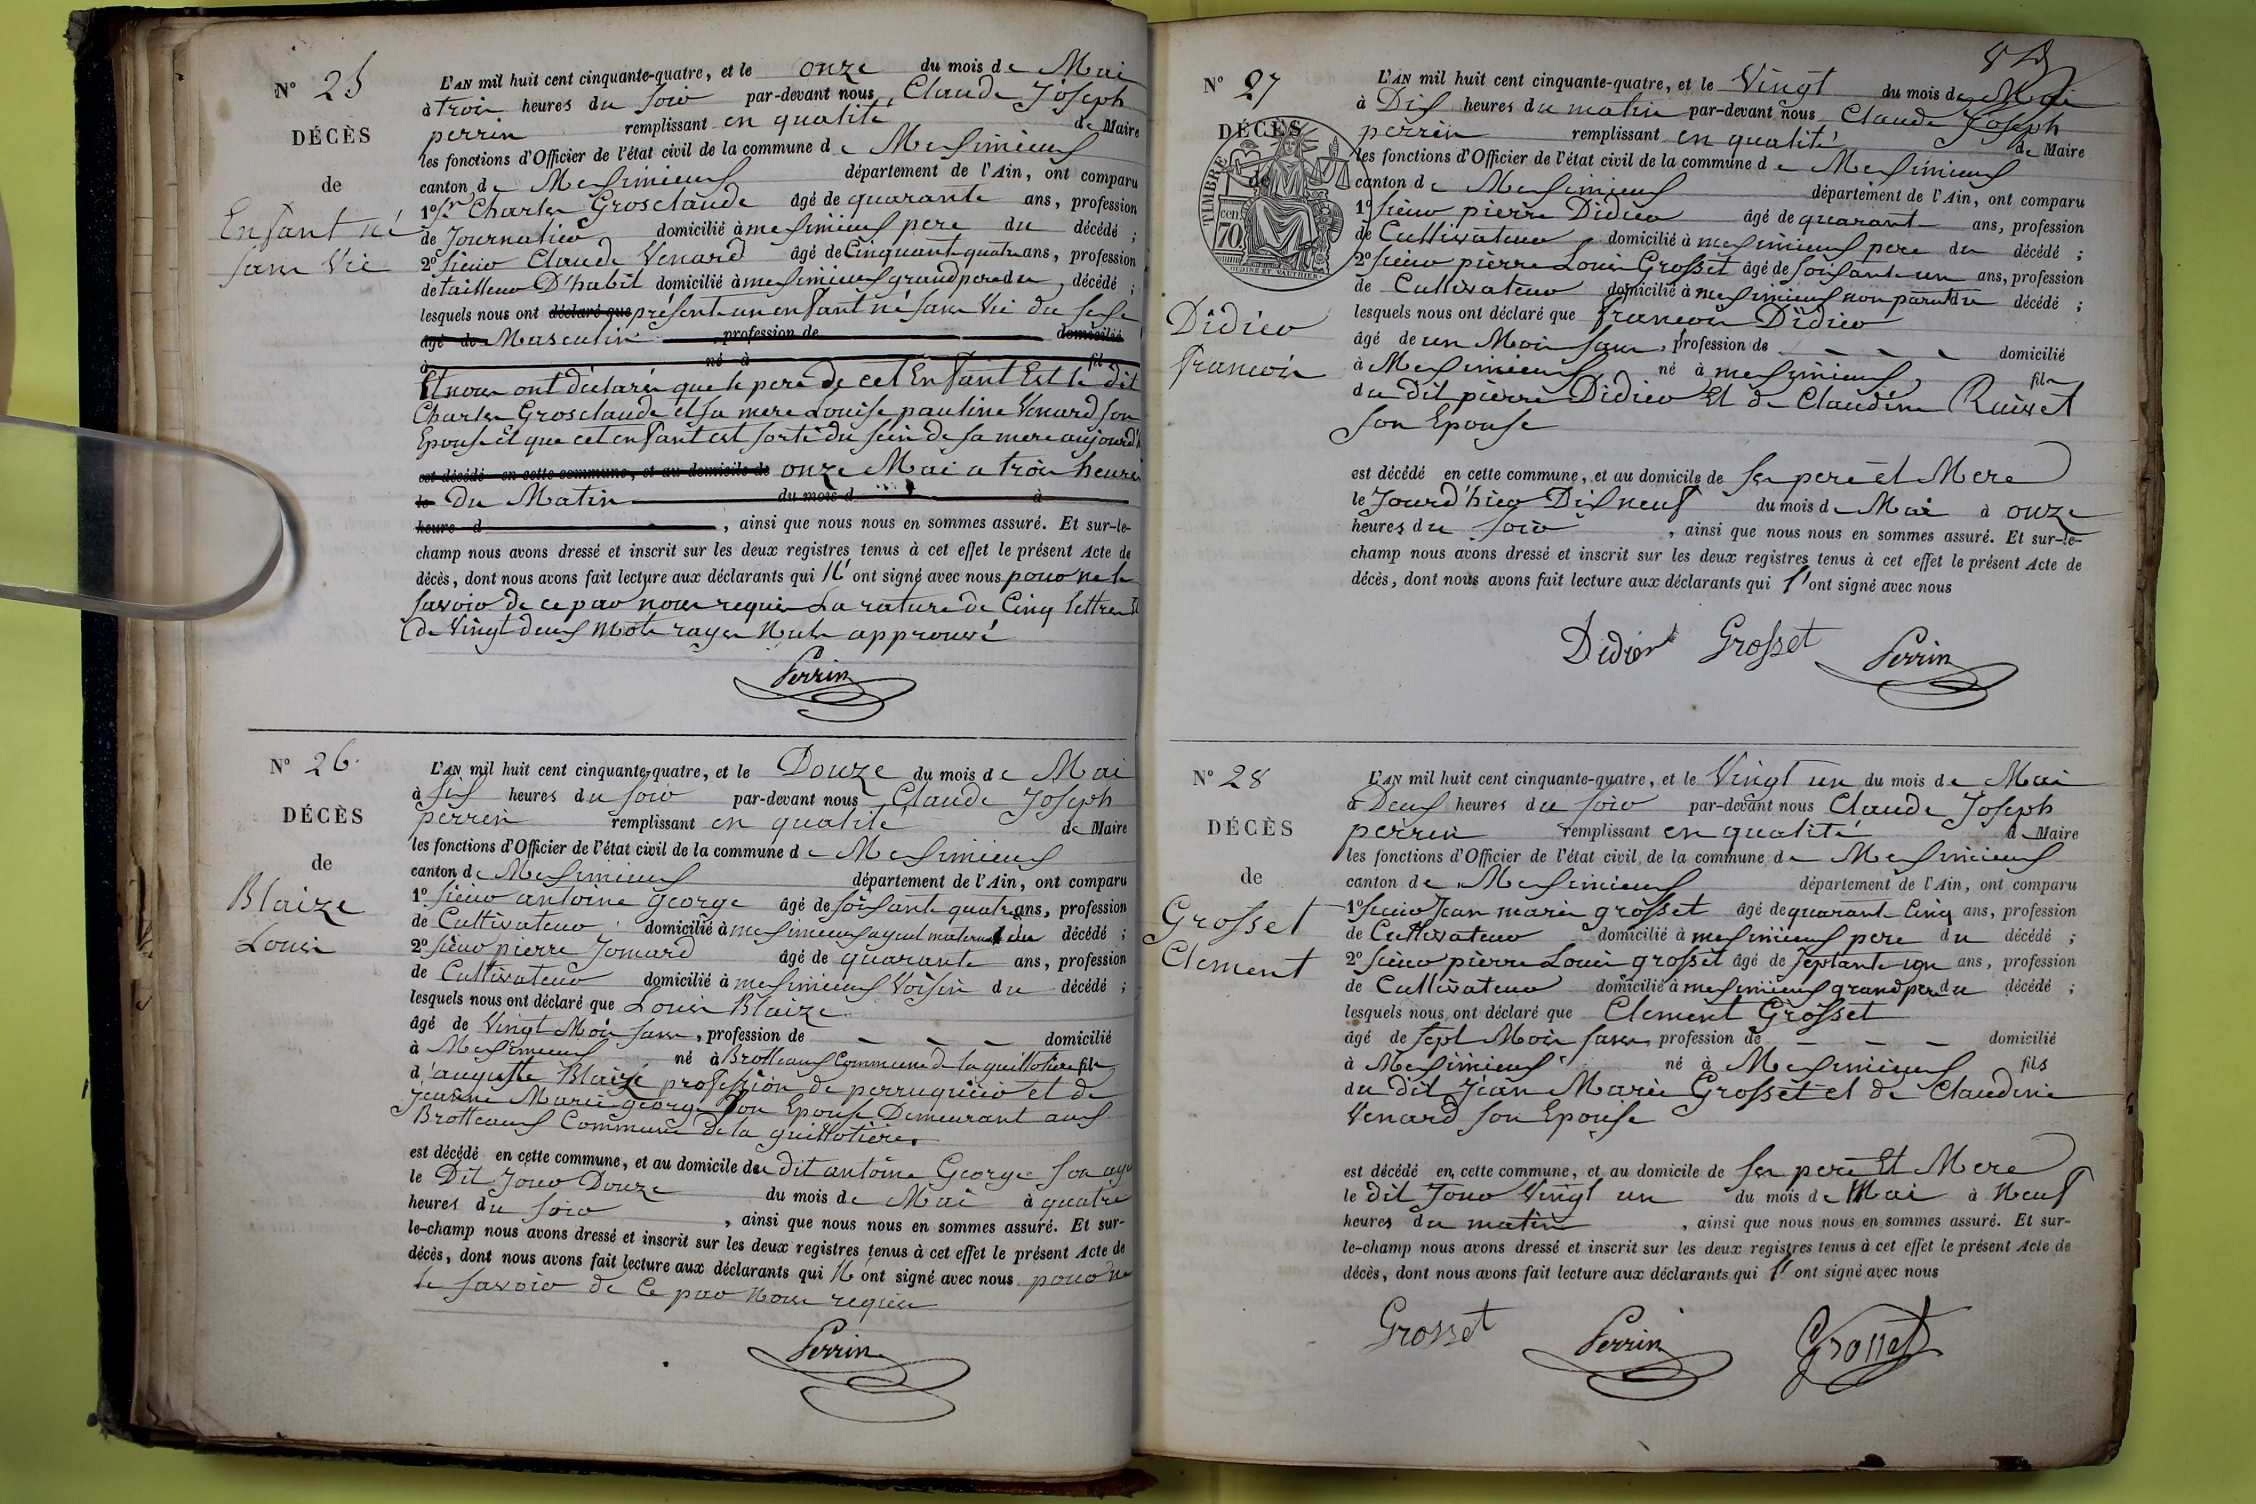 Nº 25
DÉCÈS
de
Enfant né
sans Vie
L'AN mil huit cent cinquante-quatre, et le onze du mois de Mai
à trois heures du soir par-devant nous Claude Joseph
perrin remplissant en qualité de Maire
les fonctions d'Officier de l'état civil de la commune de Meximieux
canton de Meximieux département de l'Ain, ont comparu
1º Sr Charles Grosclaude âgé de quarante ans, profession
de Journalier domicilié à meximieux pere du décédé ;
2º sieur Claude Venard âgé de Cinquante quatre ans, profession
de tailleur D'habit domicilié à meximieux grand pere du décédé ;
lesquels nous ont déclaré que présenté un enfant né sans Vie du sexe
âgé de Masculin profession de domicilié
à né à fil
Et nous ont déclarés que le pere de cet Enfant Est le dit
Charles Grosclaude et sa mere Louise pauline Venard son
Epouse Et que cet enfant est sorti du sein de sa mere aujourd'h
est décédé en cette commune, et au domicile de onze Mai a trois heures
le du Matin du mois d à
heure d , ainsi que nous nous en sommes assuré. Et sur-le-
champ nous avons dressé et inscrit sur les deux registres tenus à cet effet le présent Acte de
décès, dont nous avons fait lecture aux déclarants qui N' ont signé avec nous pour ne le
savoir de ce par nous requis La rature de Cinq lettres Et
de Vingt deux Mots rayés Nuls approuvé
Perrin
Nº 26
DÉCÈS
de
Blaize
Louis
L'AN mil huit cent cinquante-quatre, et le Douze du mois de Mai
à six heures du soir par-devant nous Claude Joseph
perrin remplissant en qualité de Maire
les fonctions d'Officier de l'état civil de la commune de Meximieux
canton de Meximieux département de l'Ain, ont comparu
1º sieur antoine george âgé de soixante quatre ans, profession
de Cultivateur domicilié à meximieux ayeul maternel du décédé ;
2º sieur pierre Jomard âgé de quarante ans, profession
de Cultivateur domicilié à meximieux Voisin du décédé ;
lesquels nous ont déclaré que Louis Blaize
âgé de Vingt Mois sans, profession de - - - domicilié
à Meximieux né à Brotteaux Commune de la guillotiere fils
d'auguste Blaize profession de perruquier et de
Jeanne Marie george son Epouse Demeurant aux
Brotteaux Commune de la guillotière.
est décédé en cette commune, et au domicile du dit antoine George son ayeul
le Dit Jour Douze du mois de Mai à quatre
heures du soir , ainsi que nous nous en sommes assuré. Et sur-
le-champ nous avons dressé et inscrit sur les deux registres tenus à cet effet le présent Acte de
décès, dont nous avons fait lecture aux déclarants qui N' ont signé avec nous pour ne
le savoir de Ce par Nous requis
Perrin
Nº 27
DÉCÈS
de
TIMBRE
cen.
70
Didier
francois
L'AN mil huit cent cinquante-quatre, et le Vingt du mois de Mai
à Dix heures du matin par-devant nous Claude Joseph
perrin remplissant en qualité de Maire
les fonctions d'Officier de l'état civil de la commune de Meximieux
canton de Meximieux département de l'Ain, ont comparu
1º sieur pierre Didier âgé de quarante ans, profession
de Cultivateur domicilié à meximieux pere du décédé ;
2º sieur pierre Louis Grosset âgé de soixante un ans, profession
de Cultivateur domicilié à meximieux non parent du décédé ;
lesquels nous ont déclaré que francois Didier
âgé de un Mois sans, profession de - - - - domicilié
à Meximieux, né à meximieux, fils
du dit pierre Didier Et de Claudine Ruivet
son Epouse
est décédé en cette commune, et au domicile de ses pere et Mere
le Jourd'hier Dix neuf du mois de Mai à onze
heures du soir , ainsi que nous nous en sommes assuré. Et sur-le-
champ nous avons dressé et inscrit sur les deux registres tenus à cet effet le présent Acte de
décès, dont nous avons fait lecture aux déclarants qui l' ont signé avec nous
Didier Grosset Perrin
Nº 28
DÉCÈS
de
Grosset
Clement
L'AN mil huit cent cinquante-quatre, et le Vingt un du mois de Mai
à Deux heures du soir par-devant nous Claude Joseph
perrin remplissant en qualité de Maire
les fonctions d'Officier de l'état civil de la commune de Meximieux
canton de Meximieux département de l'Ain, ont comparu
1º sieur Jean marie grosset âgé de quarante Cinq ans, profession
de Cultivateur domicilié à meximieux pere du décédé ;
2º sieur pierre Louis grosset âgé de septante un ans, profession
de Cultivateur domicilié à meximieux grand pere du décédé ;
lesquels nous ont déclaré que Clement Grosset
âgé de sept Mois sans, profession de - - - domicilié
à Meximieux né à Meximieux fils
du dit Jean Marie Grosset et de Claudine
Venard son Epouse
est décédé en cette commune, et au domicile de ses pere Et Mere
le dit Jour Vingt un du mois de Mai à Neuf
heures du matin , ainsi que nous nous en sommes assuré. Et sur-
le-champ nous avons dressé et inscrit sur les deux registres tenus à cet effet le présent Acte de
décès, dont nous avons fait lecture aux déclarants qui l' ont signé avec nous
Grosset Perrin Grosset